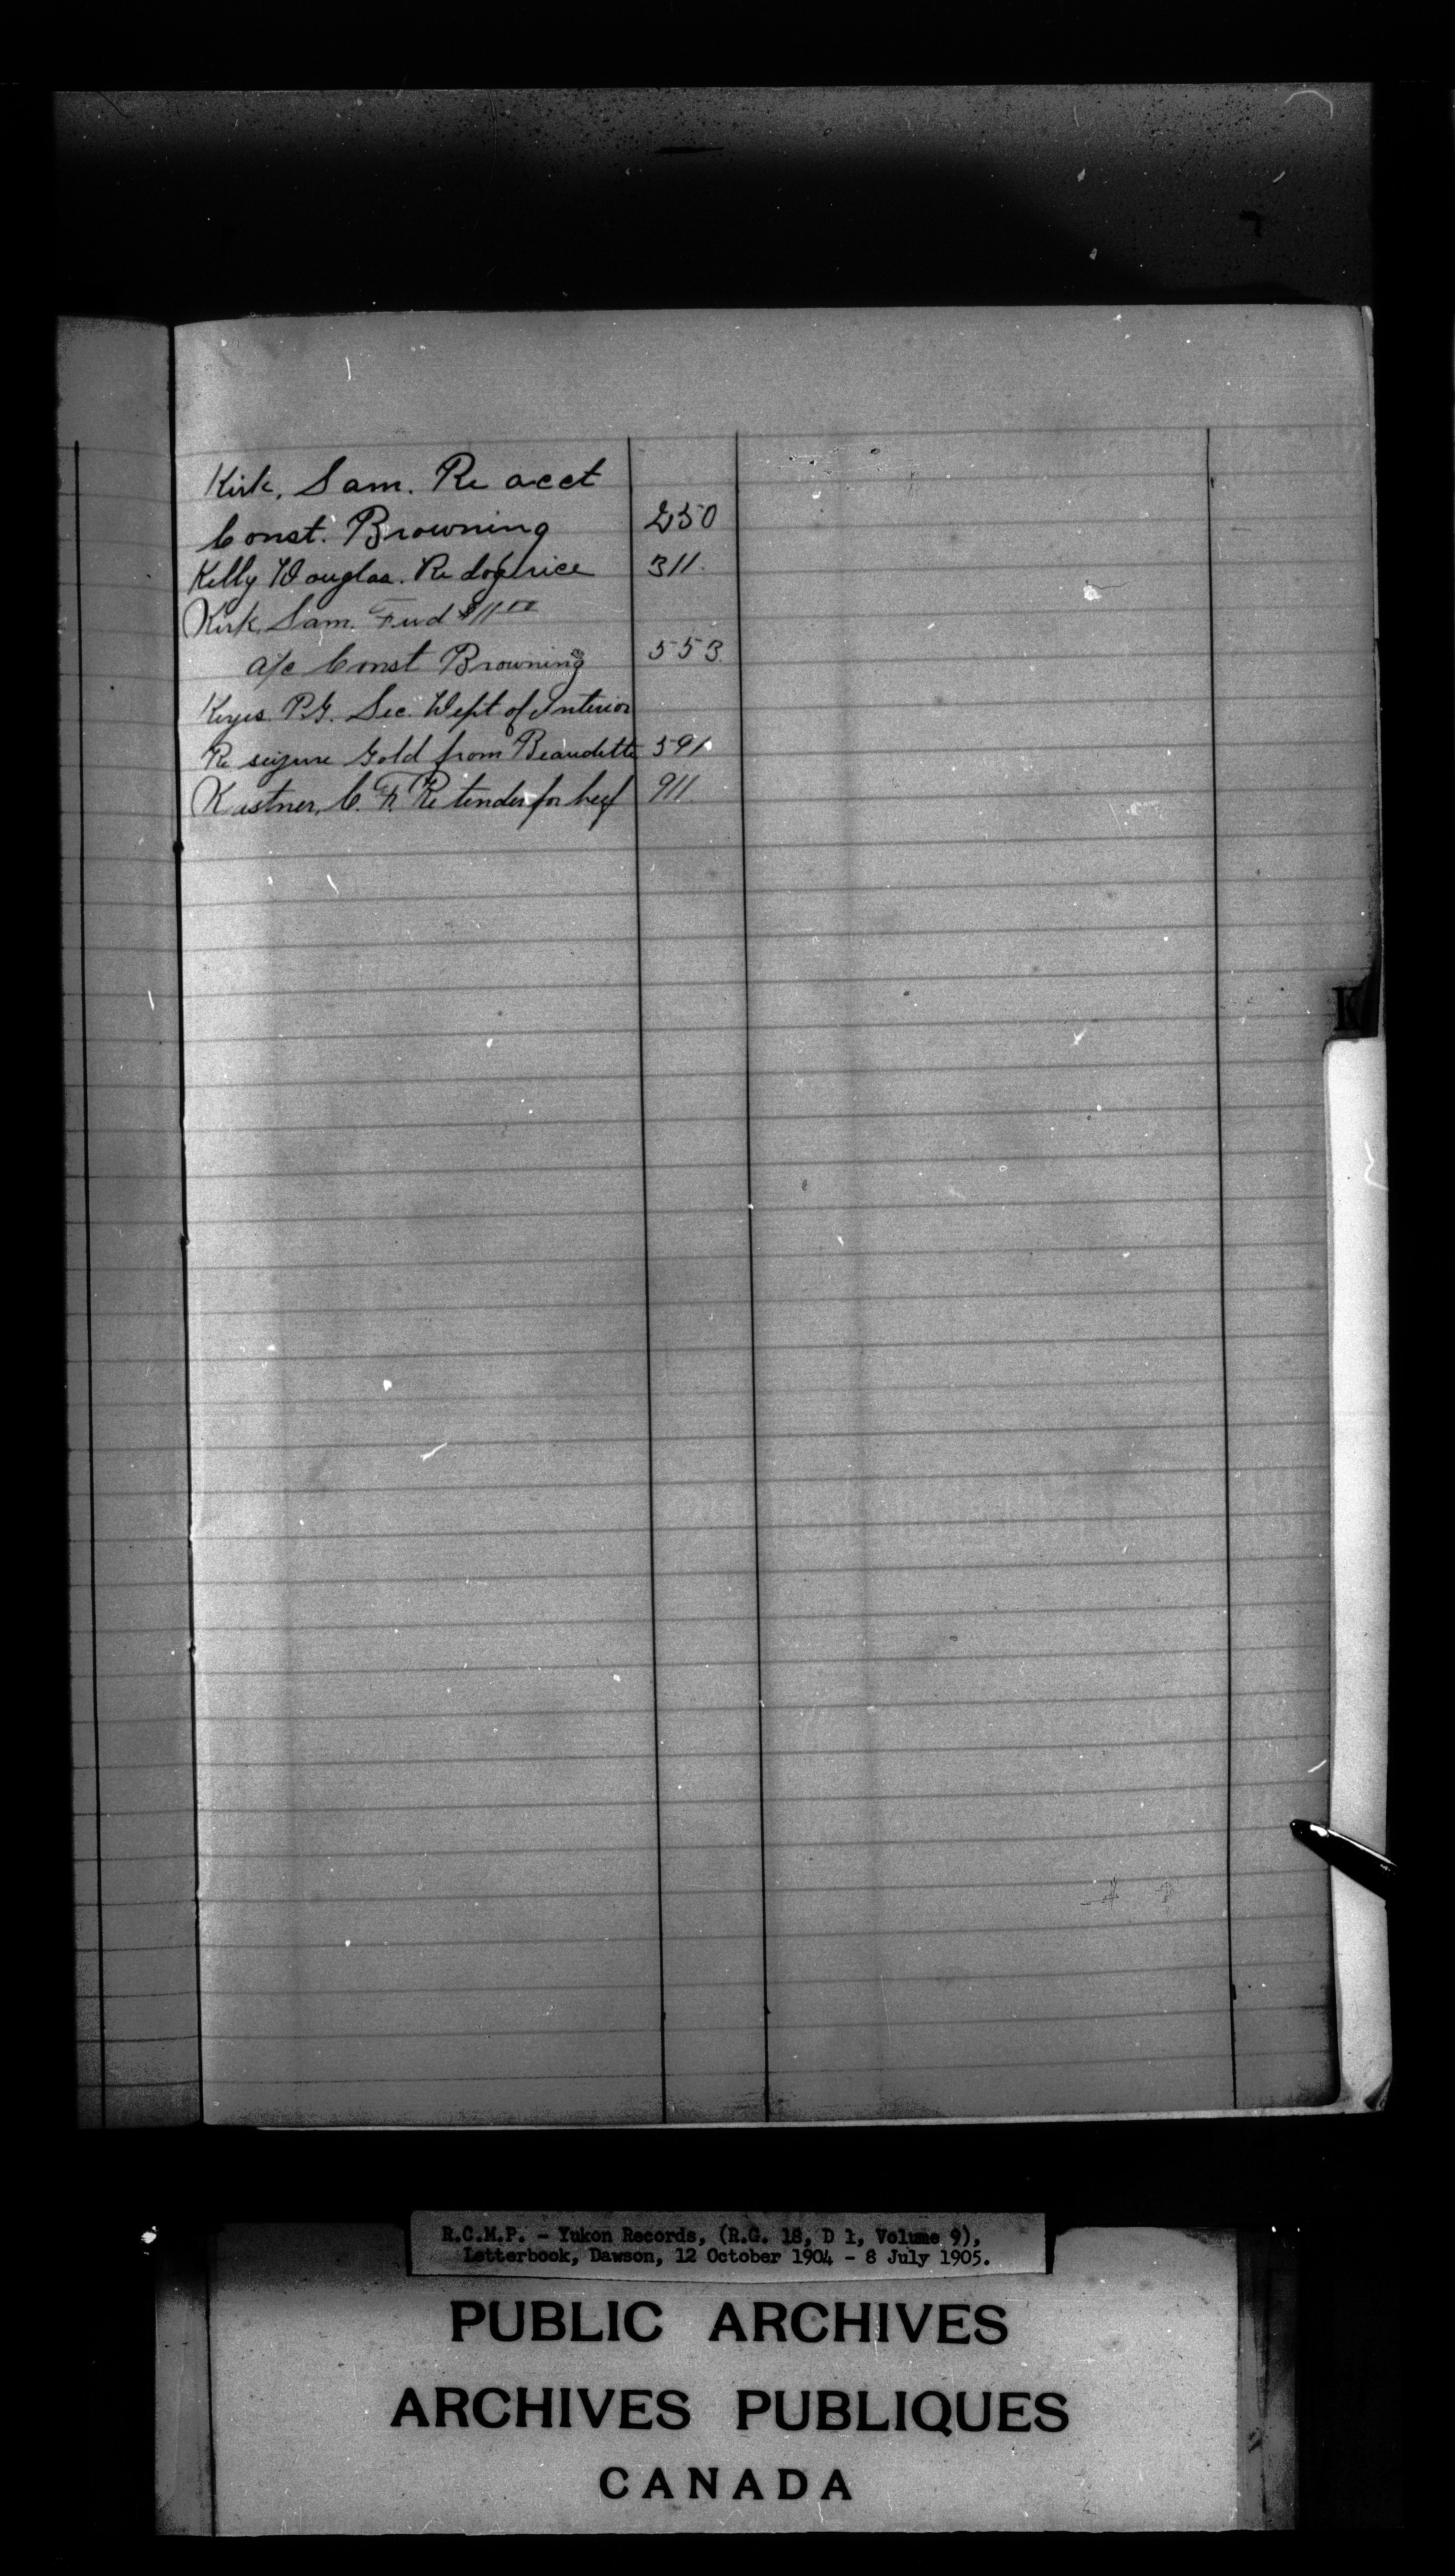 Kirk, Sam. Re acct
Const. Browning 250
Kelly Douglas. Re dog rice 311.
Kirk, Sam. Fwd $11.00
a/c Const Browning 553.
Keyes. P.G. Sec. Dept of Interior
Re seizure Gold from Beaudette 591
Kistner, C. F. Re tender for beef 911.
K
R.C.M.P. - Yukon Records, (R.G. 18, D 1, Volume 9),
Letterbook, Dawson, 12 October 1904 - 8 July 1905.
PUBLIC ARCHIVES
ARCHIVES PUBLIQUES
CANADA